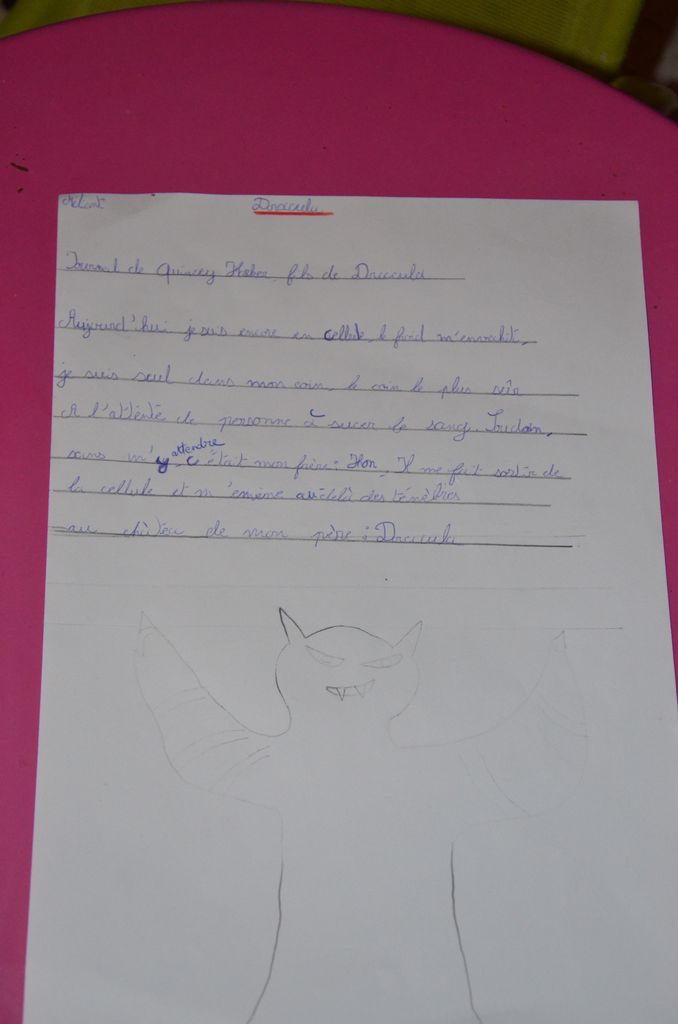 Dracula
Journal de Quincey Harker, fils de Dracula
Aujourd'hui je suis encore en cellule, le froid m'envahit,
je suis seul dans mon coin, le coin le plus sûr
A l'attente de personne à sucer le sang. Soudain,
sans m'y attendre c'était mon frère : Hon, Il me fait sortir de
la cellule et m'emène au delà des ténèbres
au château de mon père : Dracula